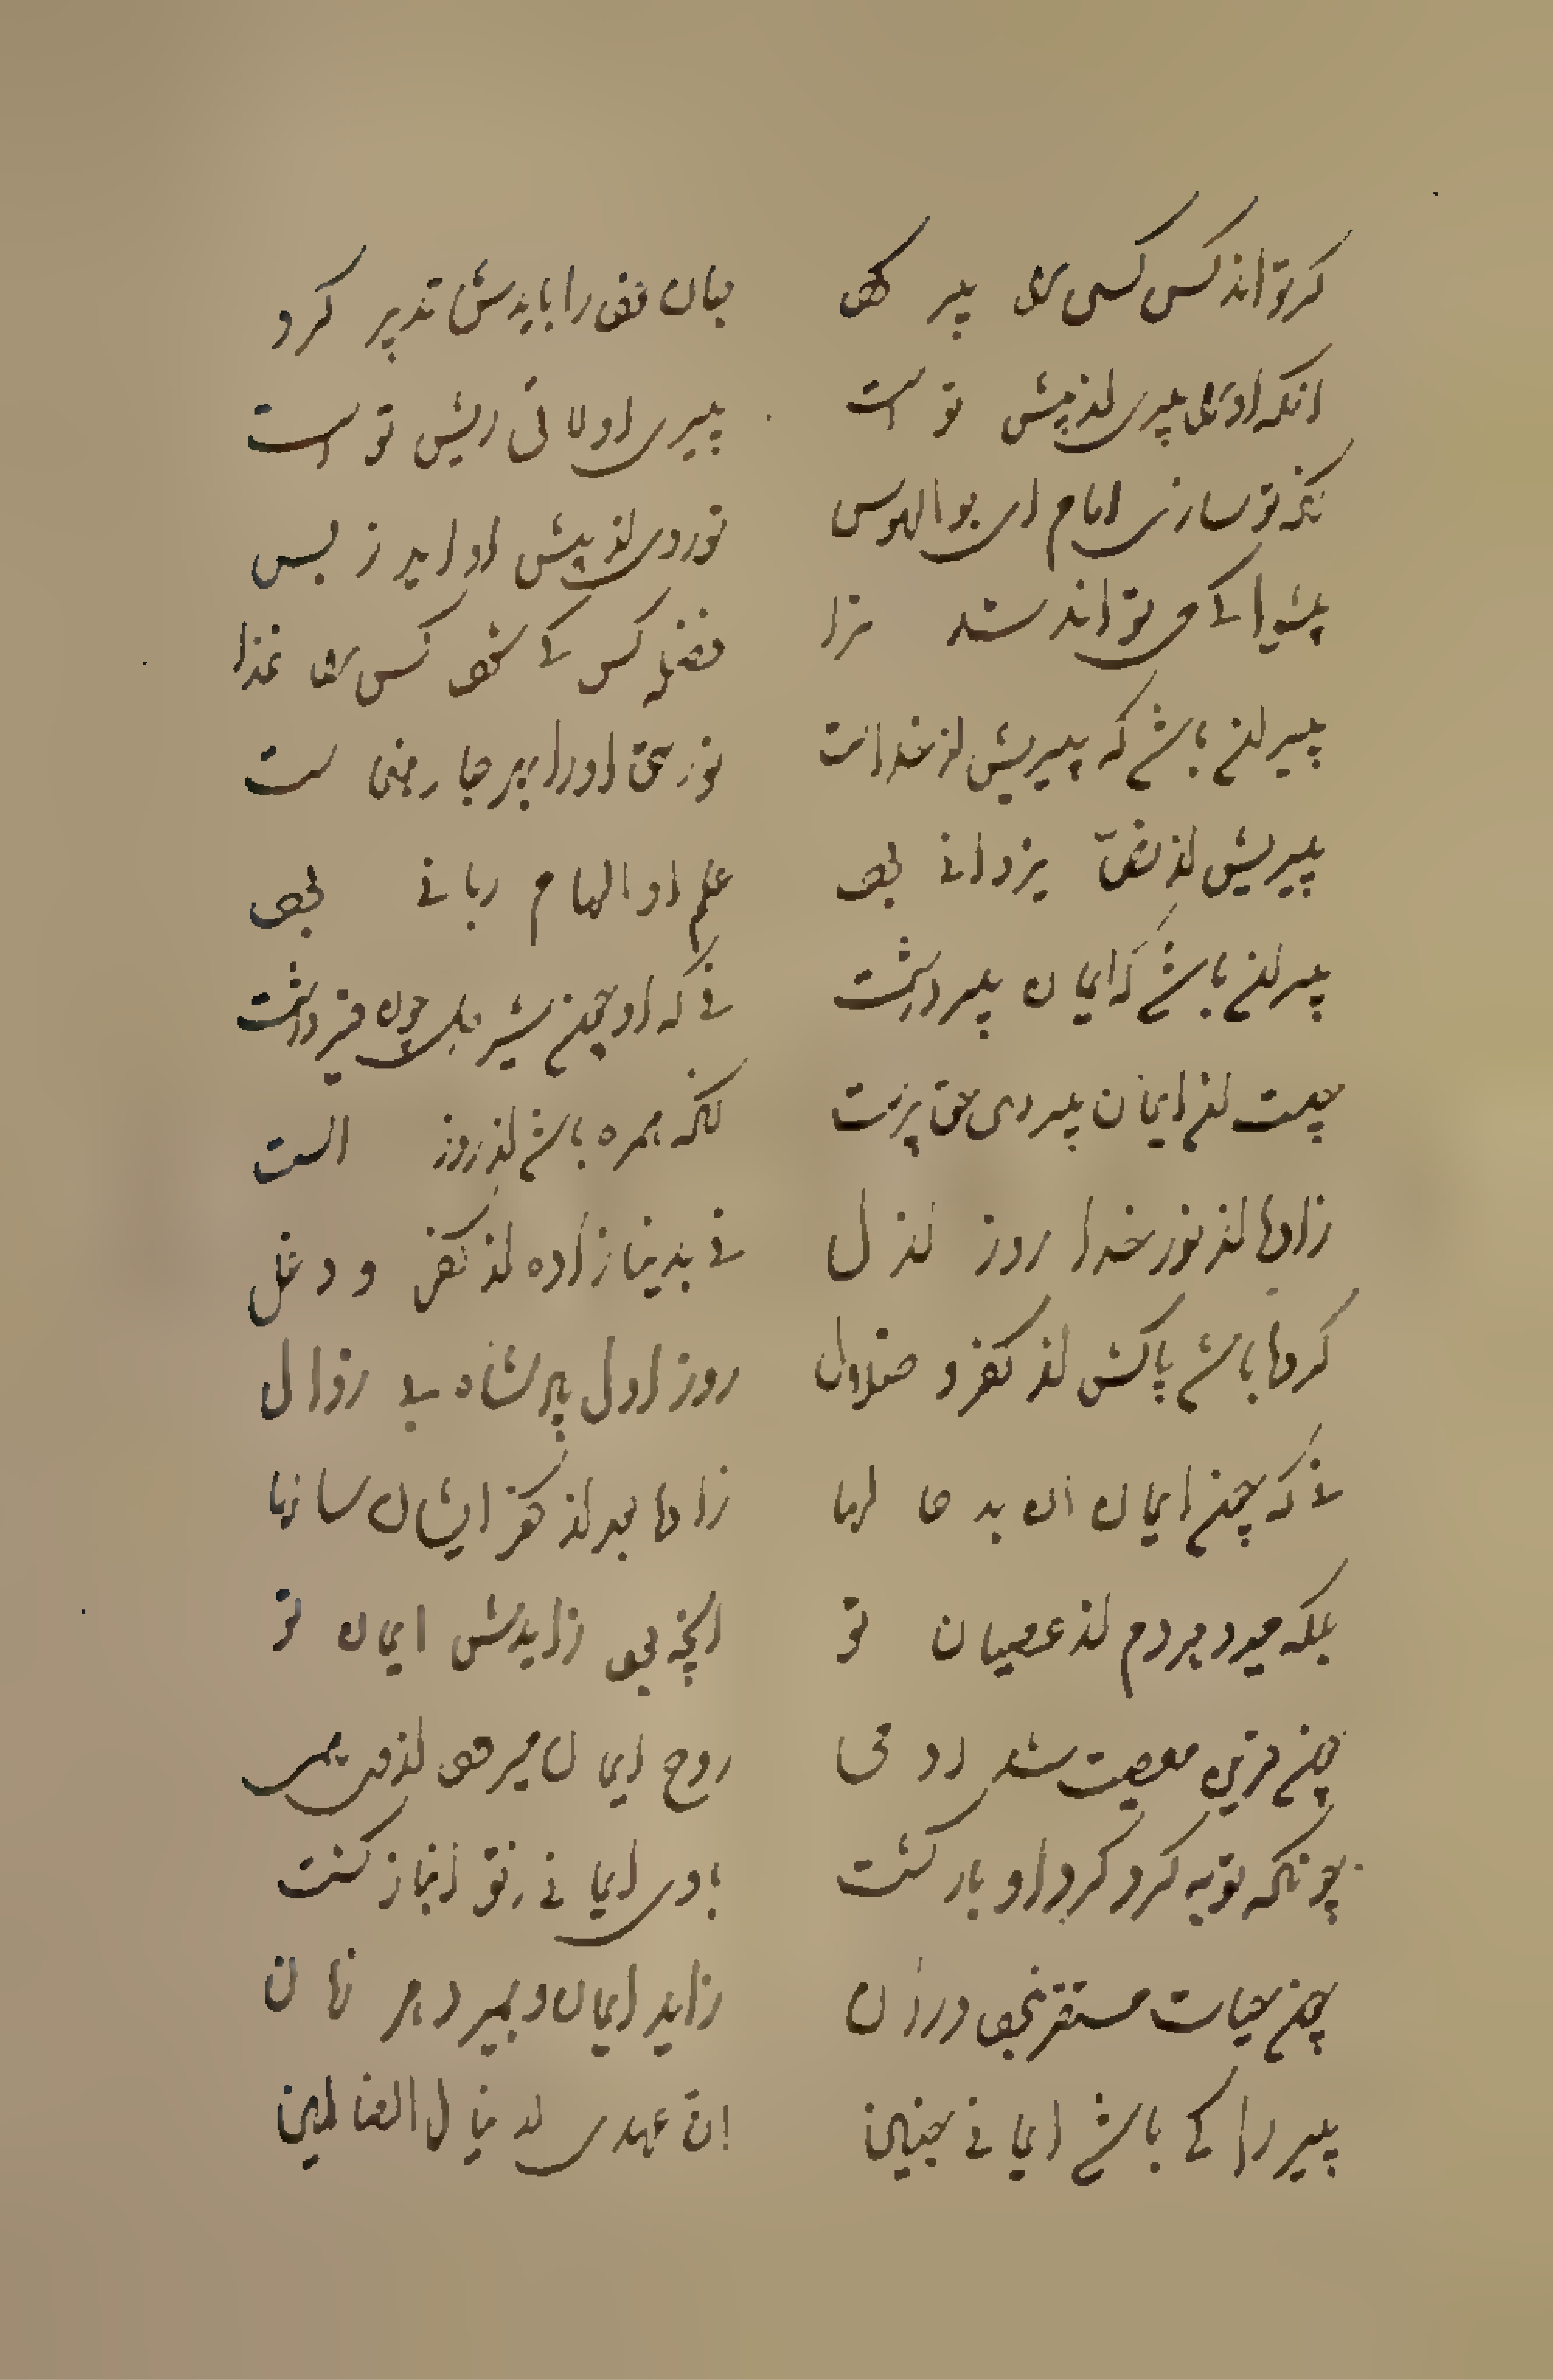 کر تواند کس کسی را پیر کرد جان خود را بایدش تدبیر کرد
انکه او را پیری از پیش تو است پیری او لائق ریش تو است
انکه تو سازی امام ای بوالهوس تو روی از پیش او اید ز پس
پیشوا کی می تواند شد ترا فضله کس کی شود کس را غذا
پیر ان باشد که پیریش از خداست نور حق او را بهر جا رهنماست
پیریش از نص یزدانی بود علم او الهام ربانی بود
پیر ان باشد که ایمان پیر داشت نی که او چون شیر جای قیر داشت
چیست ان ایمان پیر ای حق پرست انکه همره باشد از روز الست
زادها از نور خدا روز ازل نی بدینا زاده از کفر و دغل
کرده باشد پاکش از کفر و ضلال روز اول پادشاه بی زوال
نی که چون ایمان ان بد
زاد بعد از کفر ایشان سازها
بلکه میرد هر دم از عصیان تو انچه بود زایدش ایمان تو
چون قرین معصیت شد ادمی روح ایمان میرود از وی همی
چونکه توبه کرد کرد او بازکشت بادی ایمانی ز نو اغاز کشت
چون حیات مستقر نبود در ان زاید ایمان و بمیرد هر زمان
پیر را کی باشد ایمانی چنین ان عهدی لا ینال الظالمین